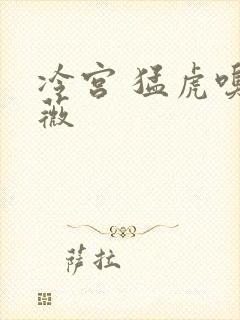 冷宫 猛虎嗅
薇
萨拉